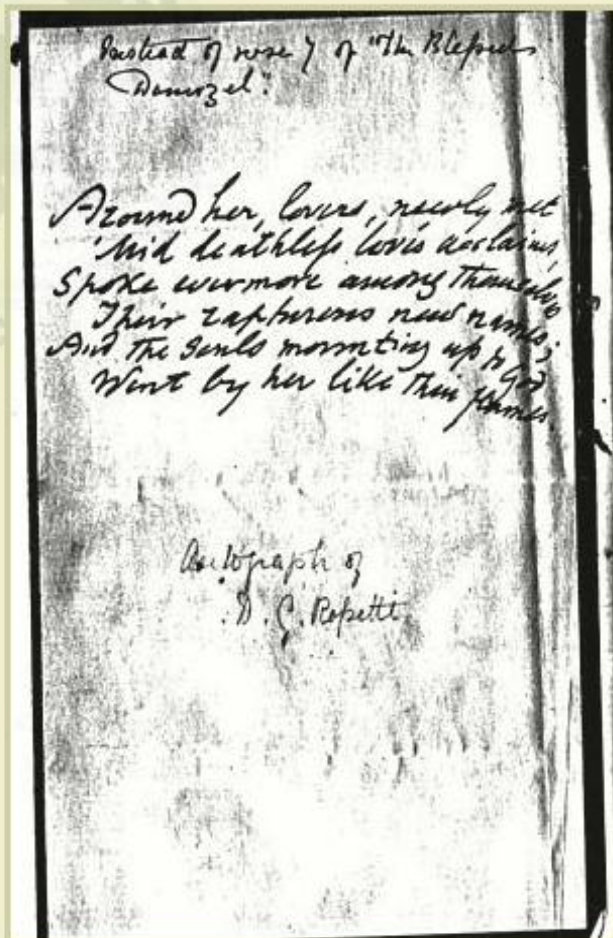 Instead of verse 7 of "The Blessed
Damozel".
Around her, lovers, newly met
'Mid deathless love's acclaims,
Spoke evermore among themselves
Their rapturous new names;
And the souls mounting up to God
Went by her like thin flames.
Autograph of
D. G. Rossetti